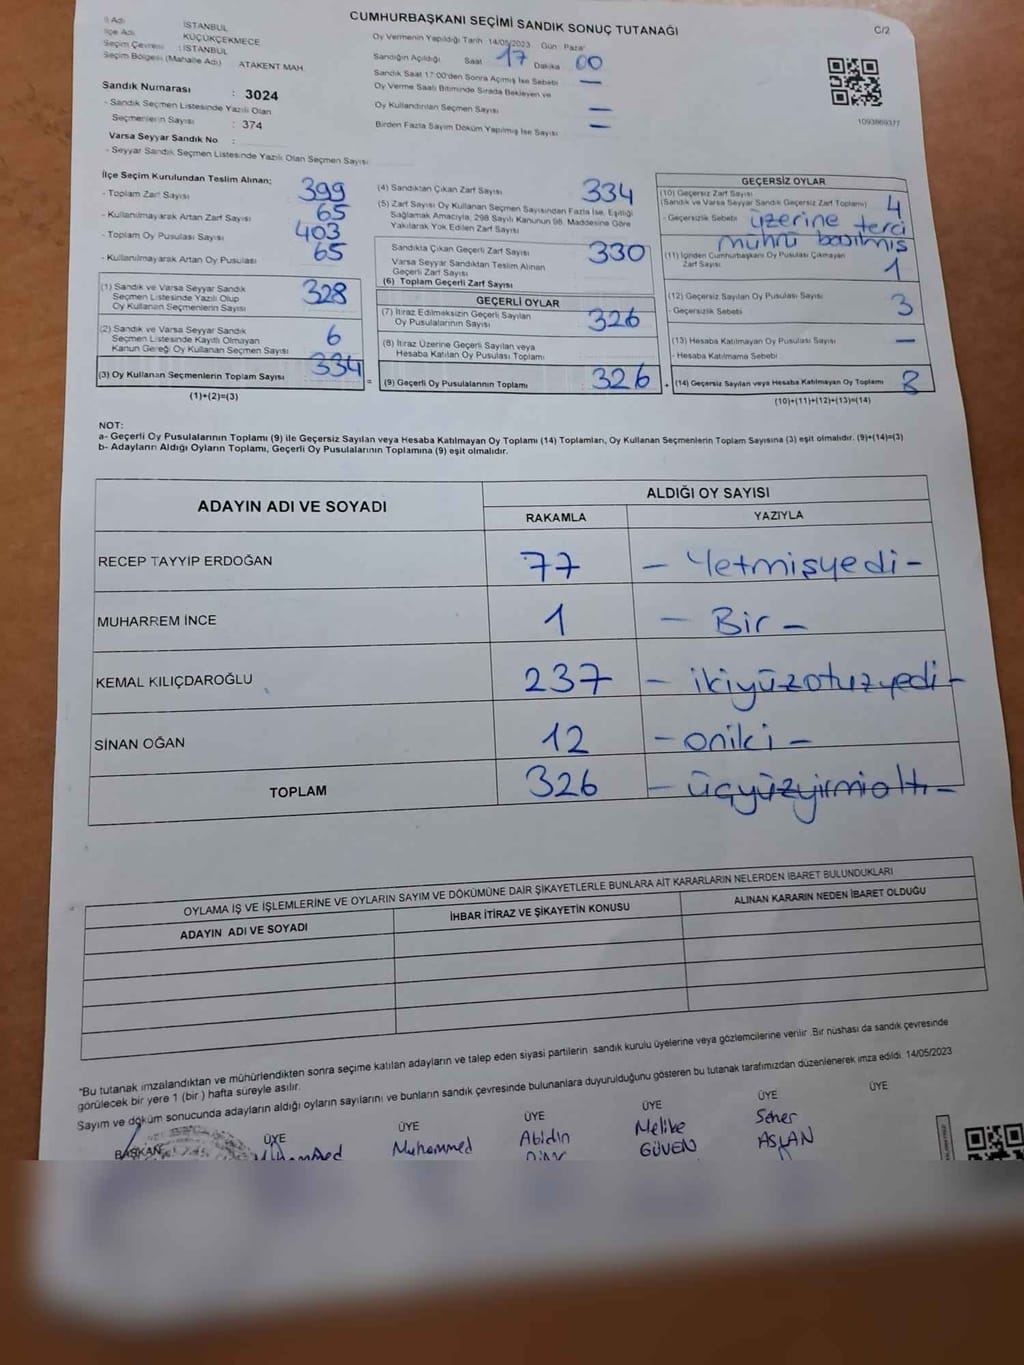 CUMHURBAŞKANI SEÇİMİ SANDIK SONUÇ TUTANAĞI
C/2
İli Adı : İSTANBUL
İlçe Adı : KÜÇÜKÇEKMECE
Seçim Çevresi : İSTANBUL
Seçim Bölgesi (Mahalle Adı) ATAKENT MAH.
Sandık Numarası : 3024
- Sandık Seçmen Listesinde Yazılı Olan
Seçmenlerin Sayısı : 374
Varsa Seyyar Sandık No :
- Seyyar Sandık Seçmen Listesinde Yazılı Olan Seçmen Sayısı
Oy Vermenin Yapıldığı Tarih 14/05/2023 Gün: Pazar
Sandığın Açıldığı Saat 17 Dakika 00
Sandık Saat 17:00'den Sonra Açmış İse Sebebi —
Oy Verme Saati Bitiminde Sırada Bekleyen ve
Oy Kullandırılan Seçmen Sayısı —
Birden Fazla Sayım Döküm Yapılmış İse Sayısı —
1093869377
İlçe Seçim Kurulundan Teslim Alınan;
- Toplam Zarf Sayısı 399
- Kullanılmayarak Artan Zarf Sayısı 65
- Toplam Oy Pusulası Sayısı 403
- Kullanılmayarak Artan Oy Pusulası 65
(1) Sandık ve Varsa Seyyar Sandık
Seçmen Listesinde Yazılı Olup
Oy Kullanan Seçmenlerin Sayısı 328
(2) Sandık ve Varsa Seyyar Sandık
Seçmen Listesinde Kayıtlı Olmayan
Kanun Gereği Oy Kullanan Seçmen Sayısı 6
(3) Oy Kullanan Seçmenlerin Toplam Sayısı 334
(1)+(2)=(3)
(4) Sandıktan Çıkan Zarf Sayısı 334
(5) Zarf Sayısı Oy Kullanan Seçmen Sayısından Fazla İse, Eşitliği
Sağlamak Amacıyla, 298 Sayılı Kanunun 98. Maddesine Göre
Yakılarak Yok Edilen Zarf Sayısı
Sandıkta Çıkan Geçerli Zarf Sayısı 330
Varsa Seyyar Sandıktan Teslim Alınan
Geçerli Zarf Sayısı
(6) Toplam Geçerli Zarf Sayısı
GEÇERLİ OYLAR
(7) İtiraz Edilmeksizin Geçerli Sayılan
Oy Pusulalarının Sayısı 326
(8) İtiraz Üzerine Geçerli Sayılan veya
Hesaba Katılan Oy Pusulası Toplamı
= (9) Geçerli Oy Pusulalarının Toplamı 326
GEÇERSİZ OYLAR
(10) Geçersiz Zarf Sayısı
(Sandık ve Varsa Seyyar Sandık Geçersiz Zarf Toplamı) 4
- Geçersizlik Sebebi üzerine terci
mührü basılmış
(11) İçinden Cumhurbaşkanı Oy Pusulası Çıkmayan
Zarf Sayısı 1
(12) Geçersiz Sayılan Oy Pusulası Sayısı 3
- Geçersizlik Sebebi
(13) Hesaba Katılmayan Oy Pusulası Sayısı —
- Hesaba Katılmama Sebebi
+ (14) Geçersiz Sayılan veya Hesaba Katılmayan Oy Toplamı 8
(10)+(11)+(12)+(13)=(14)
NOT:
a- Geçerli Oy Pusulalarının Toplamı (9) ile Geçersiz Sayılan veya Hesaba Katılmayan Oy Toplamı (14) Toplamları, Oy Kullanan Seçmenlerin Toplam Sayısına (3) eşit olmalıdır. (9)+(14)=(3)
b- Adayların Aldığı Oyların Toplamı, Geçerli Oy Pusulalarının Toplamına (9) eşit olmalıdır.
ADAYIN ADI VE SOYADI
ALDIĞI OY SAYISI
RAKAMLA YAZIYLA
RECEP TAYYİP ERDOĞAN 77 - Yetmişyedi -
MUHARREM İNCE 1 - Bir -
KEMAL KILIÇDAROĞLU 237 - ikiyüzotuzyedi -
SİNAN OĞAN 12 - oniki -
TOPLAM 326 - üçyüzyirmialtı -
OYLAMA İŞ VE İŞLEMLERİNE VE OYLARIN SAYIM VE DÖKÜMÜNE DAİR ŞİKAYETLERLE BUNLARA AİT KARARLARIN NELERDEN İBARET BULUNDUKLARI
ADAYIN ADI VE SOYADI İHBAR İTİRAZ VE ŞİKAYETİN KONUSU ALINAN KARARIN NEDEN İBARET OLDUĞU
"Bu tutanak imzalandıktan ve mühürlendikten sonra seçime katılan adayların ve talep eden siyasi partilerin sandık kurulu üyelerine veya gözlemcilerine verilir. Bir nüshası da sandık çevresinde
görülecek bir yere 1 (bir) hafta süreyle asılır.
Sayım ve döküm sonucunda adayların aldığı oyların sayılarını ve bunların sandık çevresinde bulunanlara duyurulduğunu gösteren bu tutanak tarafımızdan düzenlenerek imza edildi. 14/05/2023
BAŞKAN ÜYE ÜYE ÜYE ÜYE ÜYE ÜYE
Muhammed Abidin Melike Seher
GÜVEN ASLAN